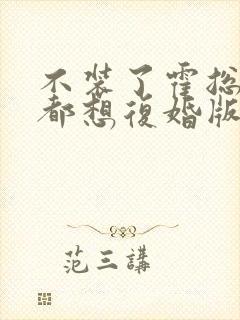 不装了霍总
都想復婚版
范三講